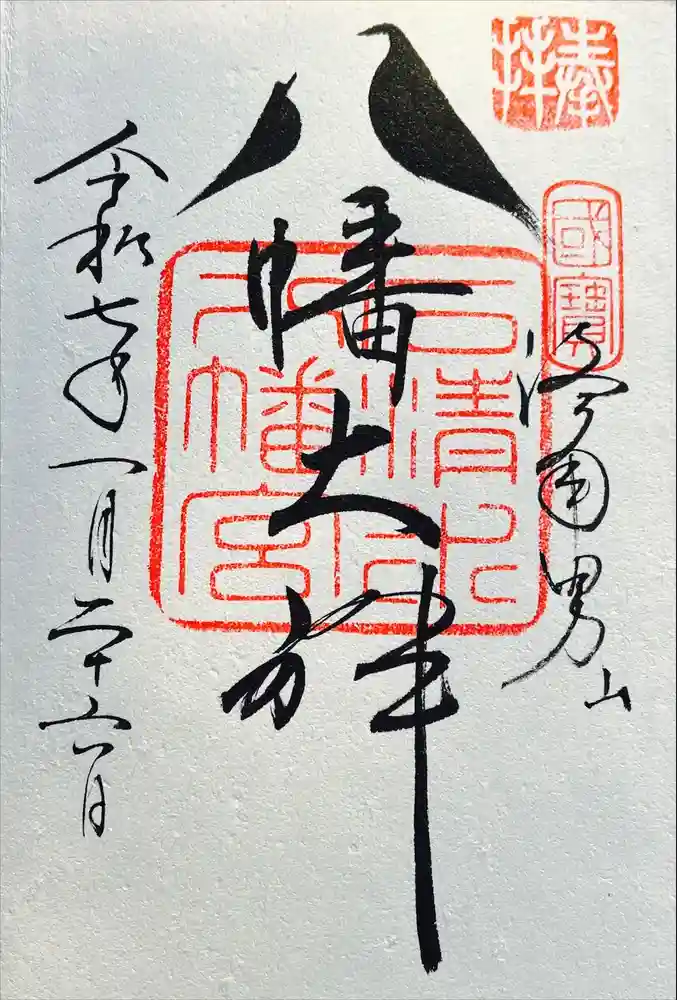 奉拝
國寶
洛南男山
石清水
八幡宮
八幡大神
令和七年一月二十六日